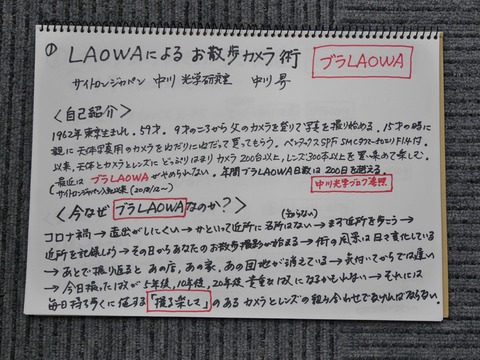 ① LAOWAによる お散歩カメラ術
ブラLAOWA
サイトロンジャパン 中川光学研究室 中川 昇
〈自己紹介〉
1962年東京生まれ。59才。9才のころから父のカメラを借りて写真を撮り始める。15才の時に
親に天体写真用のカメラをねだりにねだって買ってもらう。ペンタックスSPF SMCタクマー
以来、天体とカメラとレンズにどっぷりはまりカメラ200台以上、レンズ300本以上を買い集めて楽しむ。
最近はブラLAOWAがやめられない。年間ブラLAOWA日数は200日を越える。
(サイトロンジャパン
中川光学ブログ参照
〈今なぜブラLAOWAなのか?〉
(知らない)
コロナ禍→遠出がしにくい→かといって近所に名所はない→まず近所を歩こう→
近所を記録しよう→その日からあなたのお散歩撮影が始まる→街の風景は日々変化している
→あとで振り返ると あの店、あの家、あの団地が消えている→気付いてからでは遅い
→今日撮った1枚が5年後、10年後、20年後 貴重な1枚になるかもしれない→それには
毎日持ち歩くに値する「撮る楽しさ」のあるカメラとレンズの組み合わせでなければならない。